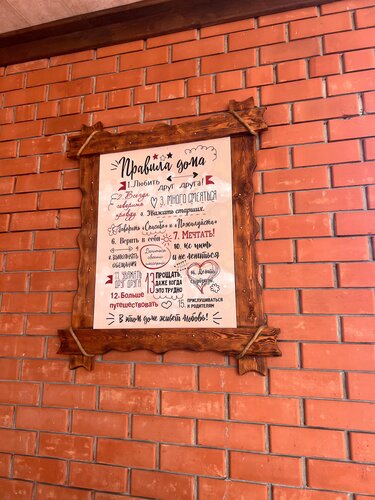 Правила дома
1. Любить друг друга!
2. Всегда говорить правду
3. МНОГО СМЕЯТЬСЯ
4. Уважать старших.
Говорить «Спасибо» и «Пожалуйста»
6. Верить в себя
7. Мечтать!
8. выполнять обещания
10. Не ныть и не лениться
13 ПРОЩАТЬ ДАЖЕ КОГДА ЭТО ТРУДНО
12. Больше путешествовать
15. ПРИСЛУШИВАТЬСЯ К РОДИТЕЛЯМ
В этом доме живет любовь!